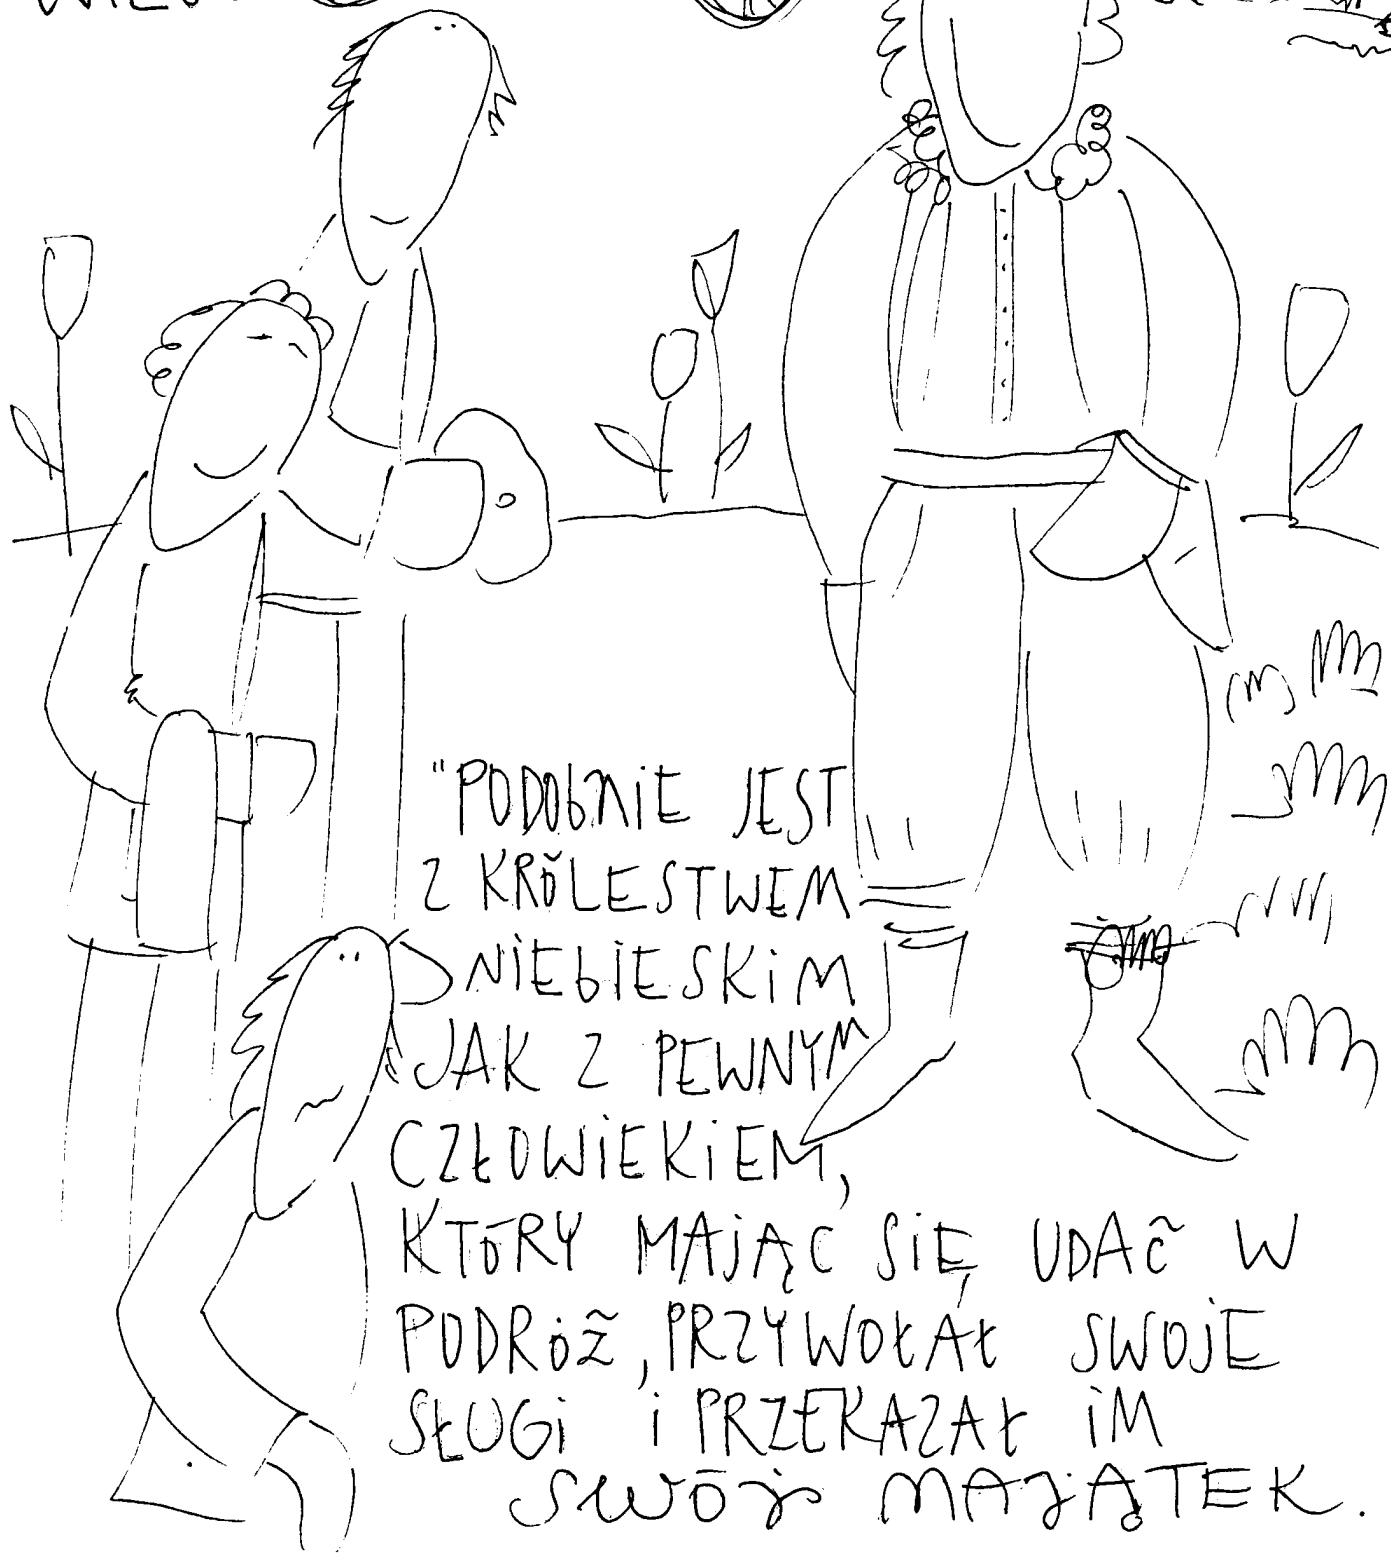 "PODObNIE JEST
Z KRÓLESTWEM
NIEbIESKIM
JAK Z PEWNYM
CZŁOWIEKIEM,
KTÓRY MAJĄC SIĘ UDAĆ W
PODRÓŻ, PRZYWOŁAŁ SWOJE
SŁUGI i PRZEKAZAŁ IM
SWÓJ MAJĄTEK.